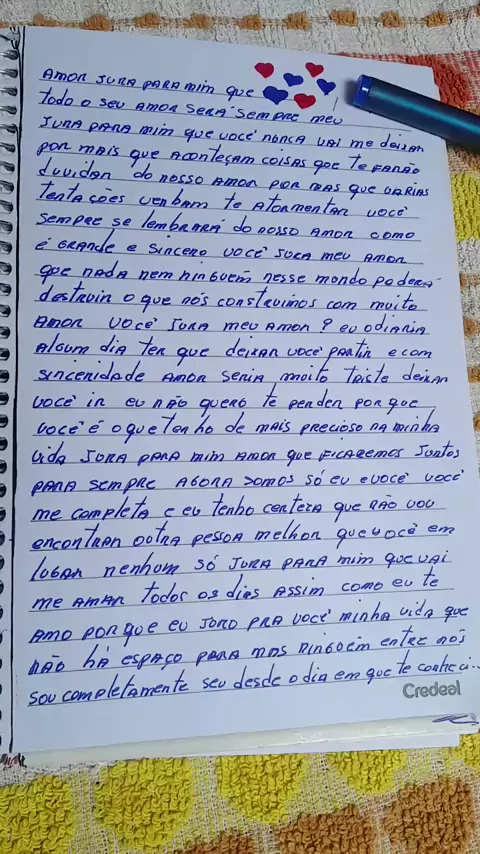 AMOR JURA PARA MIM QUE
todo o seu AMOR SERÁ SEMPRE MEU
JURA PARA MIM QUE VOCÊ NUNCA VAI ME DEIXAR
POR MAIS QUE ACONTEÇAM COISAS QUE TE FARÃO
DUVIDAR DO NOSSO AMOR POR MAS QUE VARIAS
TENTAÇÕES VENHAM TE ATORMENTAR VOCÊ
SEMPRE SE LEMBRARÁ DO NOSSO AMOR COMO
É GRANDE E SINCERO VOCÊ JURA MEU AMOR
QUE NADA NEM NINGUÉM NESSE MUNDO PODERÁ
DESTRUIR O QUE NÓS CONSTRUIMOS COM MUITO
AMOR VOCÊ JURA MEU AMOR? EU ODIARIA
ALGUM DIA TER QUE DEIXAR VOCÊ PARTIR E COM
SINCERIDADE AMOR SERIA MUITO TRISTE DEIXAR
VOCÊ IR EU NÃO QUERO TE PERDER POR QUE
VOCÊ É O QUE TENHO DE MAIS PRECIOSO NA MINHA
VIDA JURA PARA MIM AMOR QUE FICAREMOS JUNTOS
PARA SEMPRE AGORA SOMOS SÓ EU E VOCÊ VOCÊ
ME COMPLETA E EU TENHO CERTEZA QUE NÃO VOU
ENCONTRAR OUTRA PESSOA MELHOR QUE VOCÊ EM
LUGAR NENHUM SÓ JURA PARA MIM QUE VAI
ME AMAR TODOS OS DIAS ASSIM COMO EU TE
AMO POR QUE EU JURO PRA VOCÊ MINHA VIDA QUE
NÃO HÁ ESPAÇO PARA MAS NINGUÉM ENTRE NÓS
SOU COMPLETAMENTE SEU DESDE O DIA EM QUE TE CONHECI...
Credeal